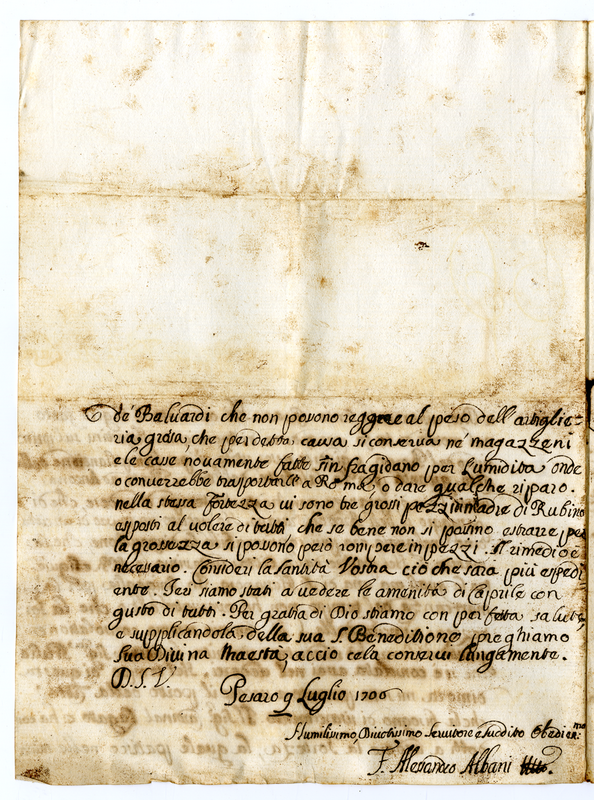 e de Baluardi che non posono reggere al peso dell'artiglie-
ria grosa, che per detta causa si conserva ne magazzeni
e le case novamente fatte sin fragidano per l'umidità onde
o converrebbe trasportarle a Roma, o dare qualche riparo.
nella stessa Fortezza vi sono tre grossi pezzi in madre di Rubino
esposti al volere di tutti, che se bene non si posino estrarre per
la grossezza si posono però rompere in pezzi. Il rimedio è
necessario. Consideri la Santità Vostra ciò che sarà più espedi
ente. Ieri siamo stati a vedere le amenità di Caprile con
gusto di tutti. Per gratia di Dio stiamo con perfetta salute,
e supplicandola della sua S. Beneditione preghiamo
Sua Divina Maestà, acciò ce la conservi lungamente.
D. S. V.
Pesaro 9 Luglio 1706
Humilissimo, Divotissimo Servitore e Suddito Obedien:mo
F. Alesandro Albani